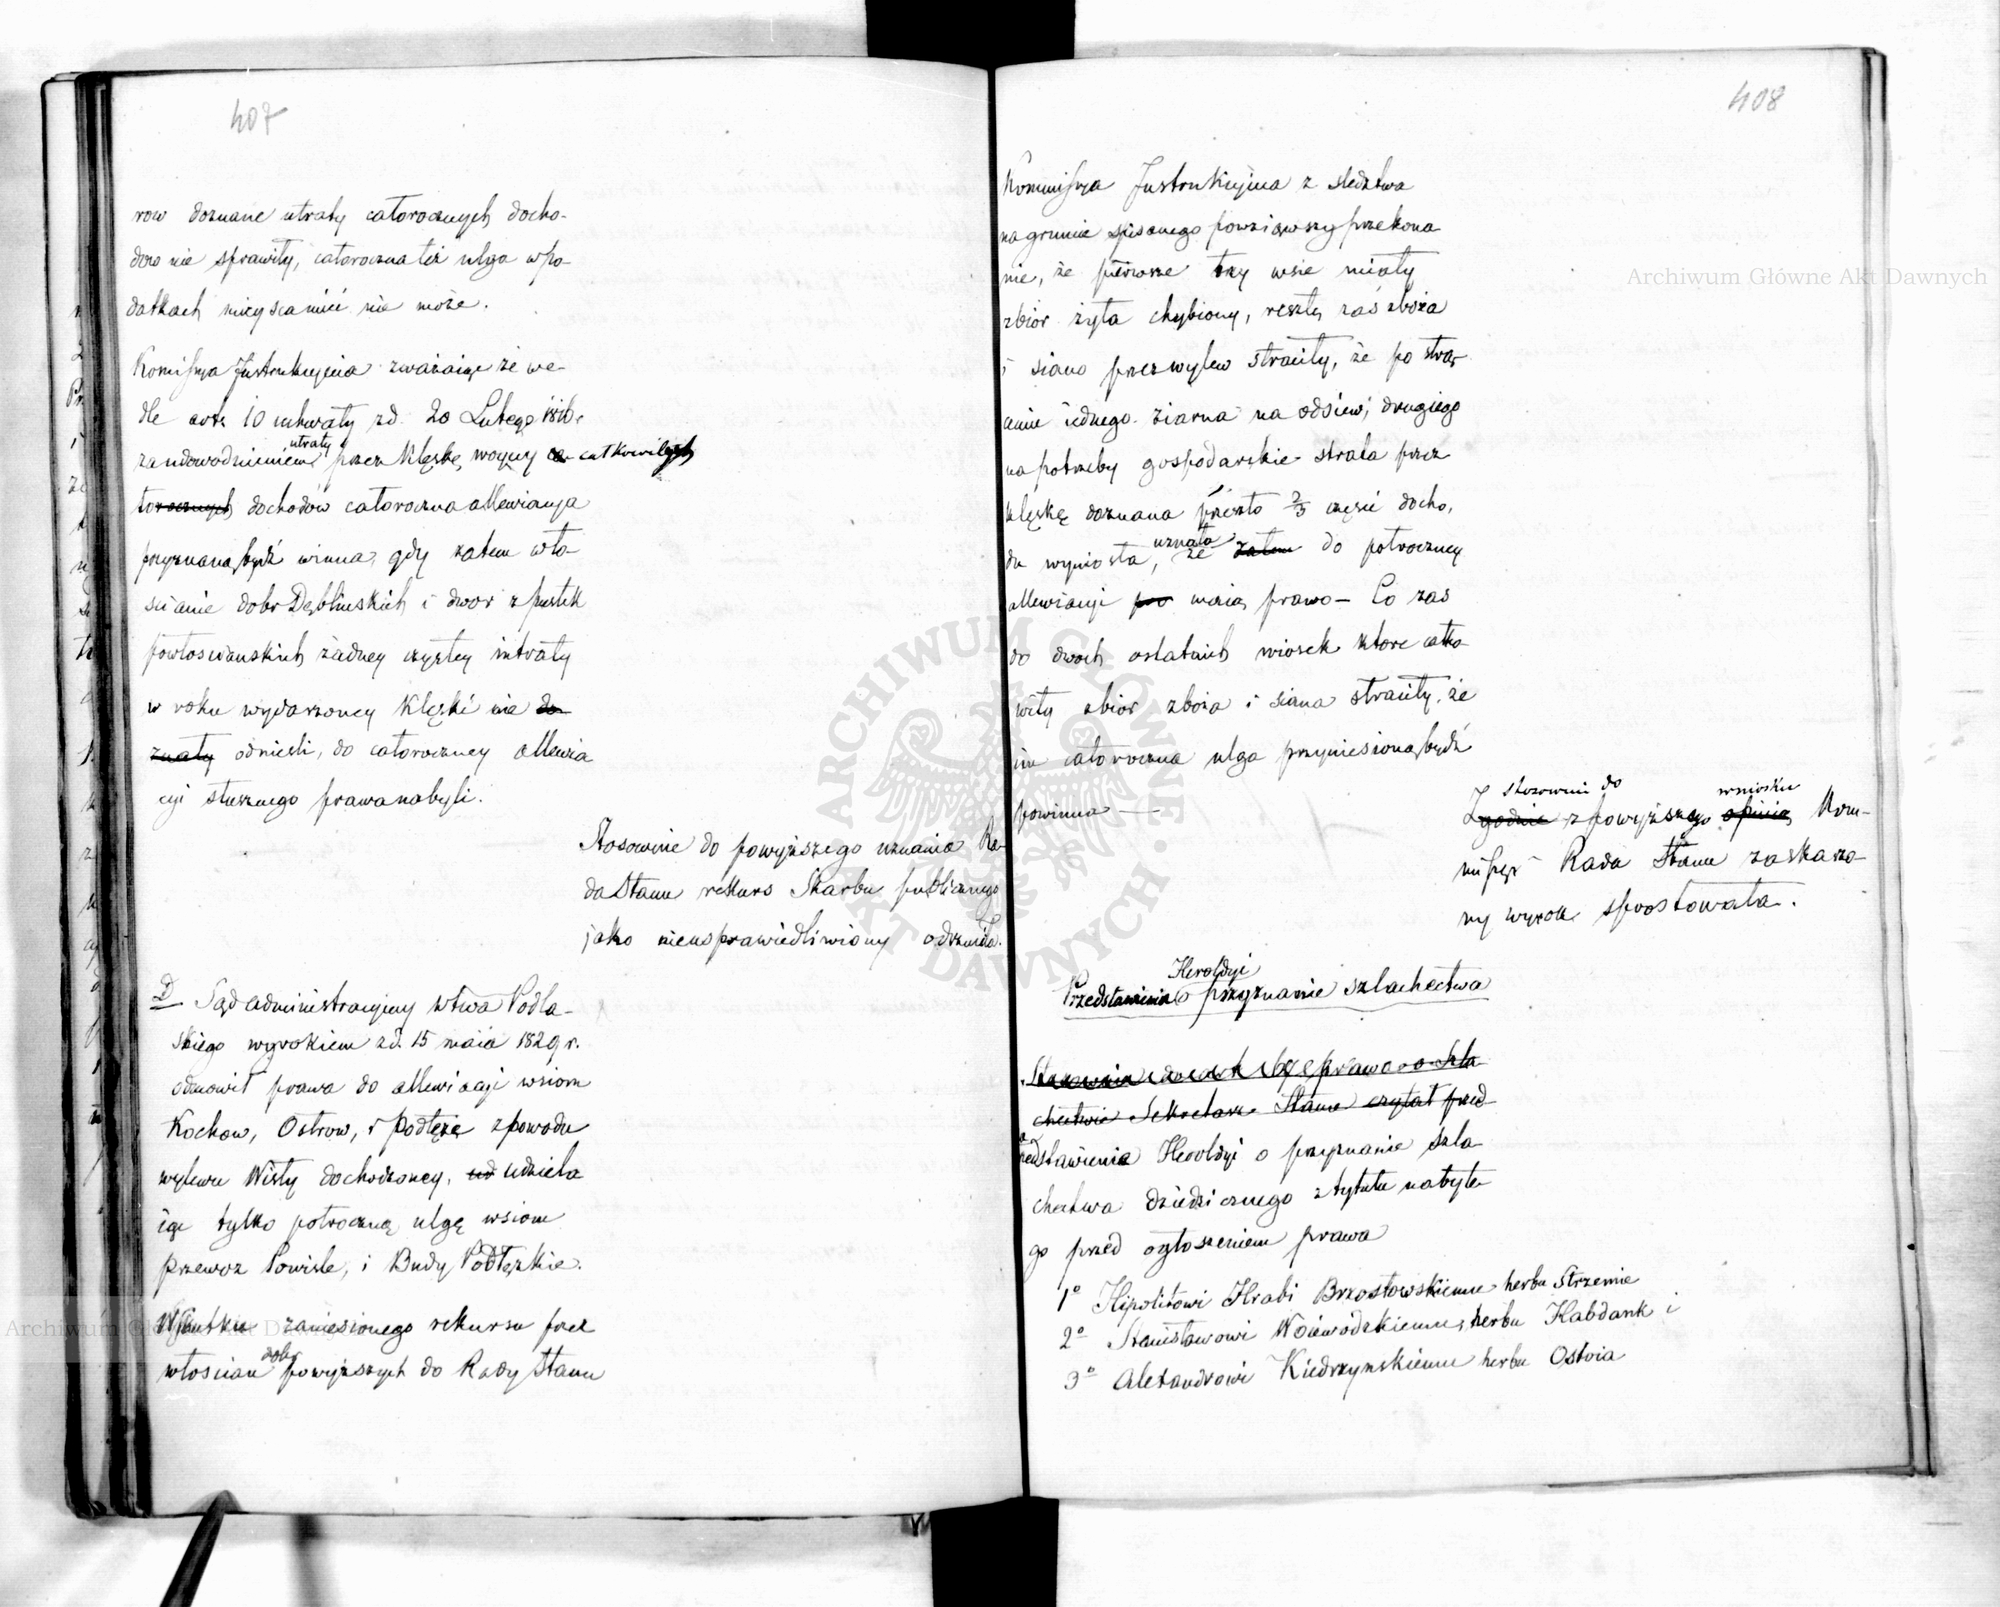 407
row doznane utraty całorocznych docho-
dow nie sprawiły, całoroczna też ulga w po-
datkach mieysca mieć nie może.
Kommissya Instrukcyjna zważaiąc że we-
dle art. 10 uchwały z d. 20 Lutego 1816 r.
za udowodnieniem utraty przez klęskę woyny ca całkowitych
torocznych dochodów całoroczna allewiacya
przyznaną bydź winna, gdy zatem wło-
scianie dobr Dęblińskich i dwor z pustek
powłoscianskich żadney czystey intraty
w roku wydarzoney klęski nie do
znały odnieśli, do całoroczney allewia
cyi słusznego prawa nabyli.
Stosownie do powyższego uznania Ra-
da Stanu rekurs Skarbu publicznego
jako nieusprawiedliwiony odrzuciła.
D. Sąd administracyjny wtwa Podla-
skiego wyrokiem z d. 15 maia 1829 r.
odmowił prawa do allewiacyi wsiom
Kochow, Ostrow, i Podłęże z powodu
wylewu Wisły dochodzoney, ud udziela
iąc tylko połroczną ulgę wsiom
przewoz Powiśle, i Budy Podłęzkie.
W skutku zaniesionego rekursu przez
włoscian dobr powyższych do Rady Stanu
408
Kommissya Instrukcyjna z śledztwa
na gruncie spisanego powziąwszy przekona
nie, że pierwsze trzy wsie miały
zbiór żyta chybiony, resztę zaś zboża
i siano przez wylew straciły, że po strą-
ceniu iednego ziarna na odsiew, drugiego
na potrzeby gospodarskie strata przez
klęskę doznana przeszło 2/3 części docho,
du wyniosła, uznała że zatem do połroczney
allewiacyi pra maią prawo — Co zas
do dwoch ostatnich wiosek ktore całko
wity zbior zboża i siana straciły, że
im całoroczna ulga przyniesioną bydź
powinna —
Stosownie do wniosku
Zgodnie z powyższego opinią Kom-
missyi Rada Stanu zaskarżo-
ny wyrok sprostowała.
Heroldyi
Przedstawienia o przyznanie szlachectwa
chectwie Sekretarz Stanu czytał przed
stawienia Heroldyi o przyznanie szla
chectwa dziedzicznego z tytułu nabyte
go przed ogłoszeniem prawa
1° Hipolitowi Hrabi Brzostowskiemu herbu Strzemie
2° Stanisławowi Woiewodzkiemu herbu Habdank i
3° Alexandrowi Kiedrzynskiemu herbu Ostoia
Archiwum Główne Akt Dawnych
Archiwum Główne Akt Dawnych
ARCHIWUM GŁÓWNE AKT DAWNYCH